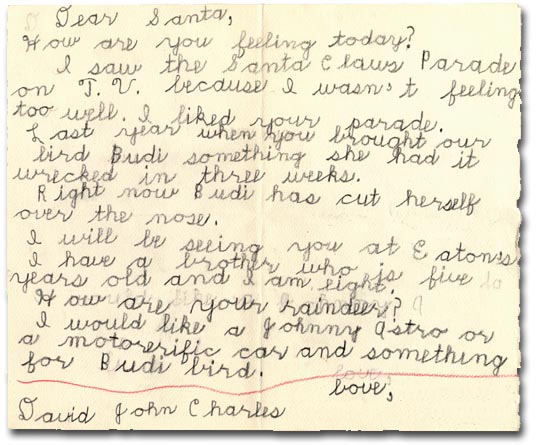 Dear Santa,
How are you feeling today?
I saw the Santa Claws Parade
on T.V. because I wasn't feeling
too well. I liked your parade.
Last year when you brought our
bird Budi something she had it
wrecked in three weeks.
Right now Budi has cut herself
over the nose.
I will be seeing you at Eaton's
I have a brother who is five
years old and I am eight.
How are your raindeer?
I would like a Johnny Astro or
a motorerific car and something
for Budi bird.
Love,
David John Charles